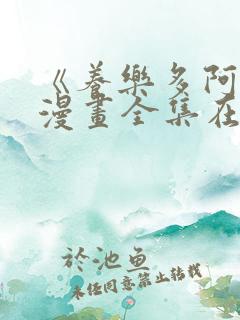 《養樂多阿
漫畫全集在
於池魚
未经同意禁止转载